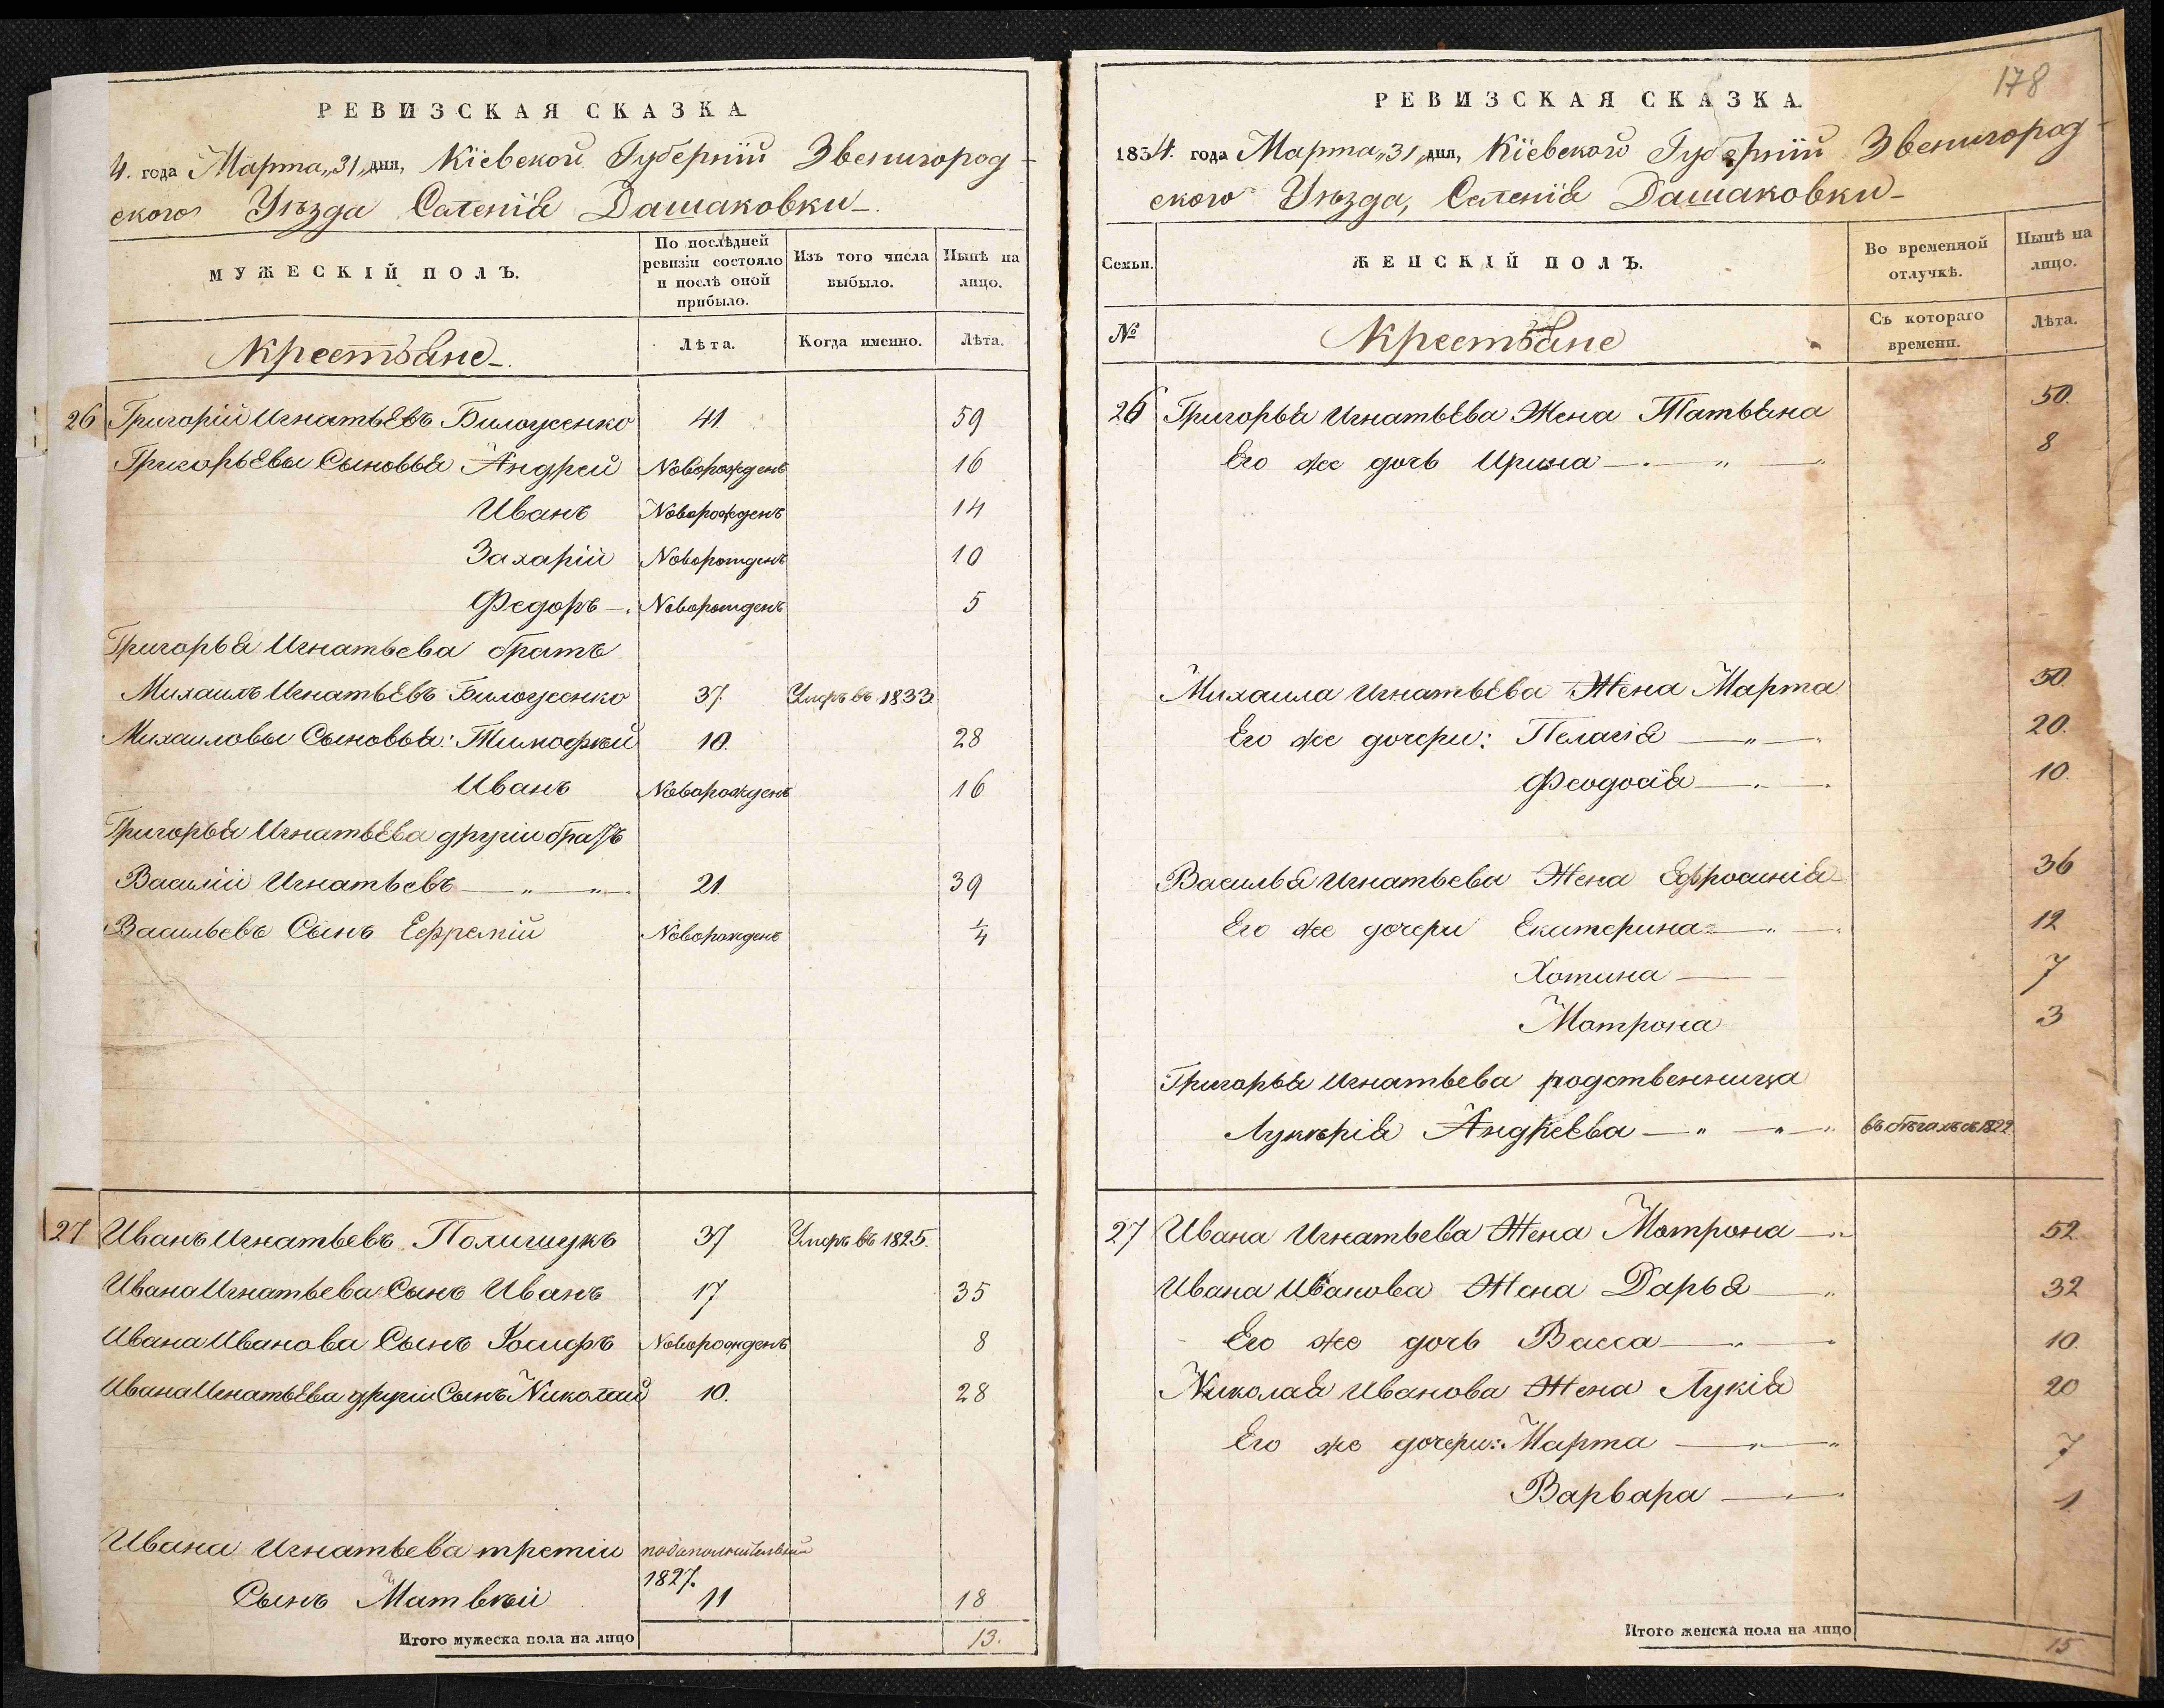 РЕВИЗСКАЯ СКАЗКА
4. года Марта „31„ дня, Кіевской Губерніи Звенигород-
ского Уѣзда Селенія Дашаковки
МУЖЕСКІЙ ПОЛЪ.
По послѣдней ревизіи состояло и послѣ оной прибыло.
Изъ того числа выбыло.
Нынѣ на лицо.
Крестьяне
Лѣта.
Когда именно.
Лѣта.
26 Григорій Игнатьевъ Билоусенко 41. 59
Григорьевы Сыновья Андрей Новорожденъ 16
Иванъ Новорожденъ 14
Захарій Новорожденъ 10
Федоръ Новорожденъ 5
Григорья Игнатьева братъ
Михаилъ Игнатьевъ Билоусенко 37. Умеръ въ 1833.
Михаиловы Сыновья: Тимофѣй 10. 28
Иванъ Новорожденъ 16
Григорья Игнатьева другіи братъ
Василіи Игнатьевъ — „ — „ 21. 39
Васильевъ Сынъ Ефремій Новорожденъ 1/4
27 Иванъ Игнатьевъ Полищукъ 37 Умеръ въ 1825.
Ивана Игнатьева Сынъ Иванъ 17 35
Ивана Иванова Сынъ Іосифъ Новорожденъ 8
Ивана Игнатьева другіи Сынъ Николай 10. 28
Ивана Игнатьева третіи
1827.
Сынъ Матвѣи 11 18
Итого мужеска пола на лицо 13.
178
РЕВИЗСКАЯ СКАЗКА.
1834. года Марта „31„ дня, Кіевского Губерніи Звенигород-
ского Уѣзда, Селенія Дашаковки
Семьи.
ЖЕНСКІЙ ПОЛЪ.
Во временной отлучкѣ.
Нынѣ на лицо.
№
Крестьяне
Съ котораго времени.
Лѣта.
26 Григорья Игнатьева Жена Татьяна 50.
Его же дочь Ирина — „ — 8
Михаила Игнатьева Жена Марта 50.
Его же дочери: Пелагія — „ — 20.
Феодосія — 10.
Василья Игнатьева Жена Ефросинія 36
Его же дочери Екатерина — „ — 12
Хотина — 7
Матрона 3
Григорья Игнатьева родственница
Лукѣрія Андреева — „ — „ — въ бѣгахъ съ 1822
27 Ивана Игнатьева Жена Мотрона — 52
Ивана Иванова Жена Дарья — 32
Его же дочь Васса — „ — 10.
Николая Иванова Жена Лукія 20
Его же дочери: Марта — „ — 7
Варвара — 1
Итого женска пола на лицо 15